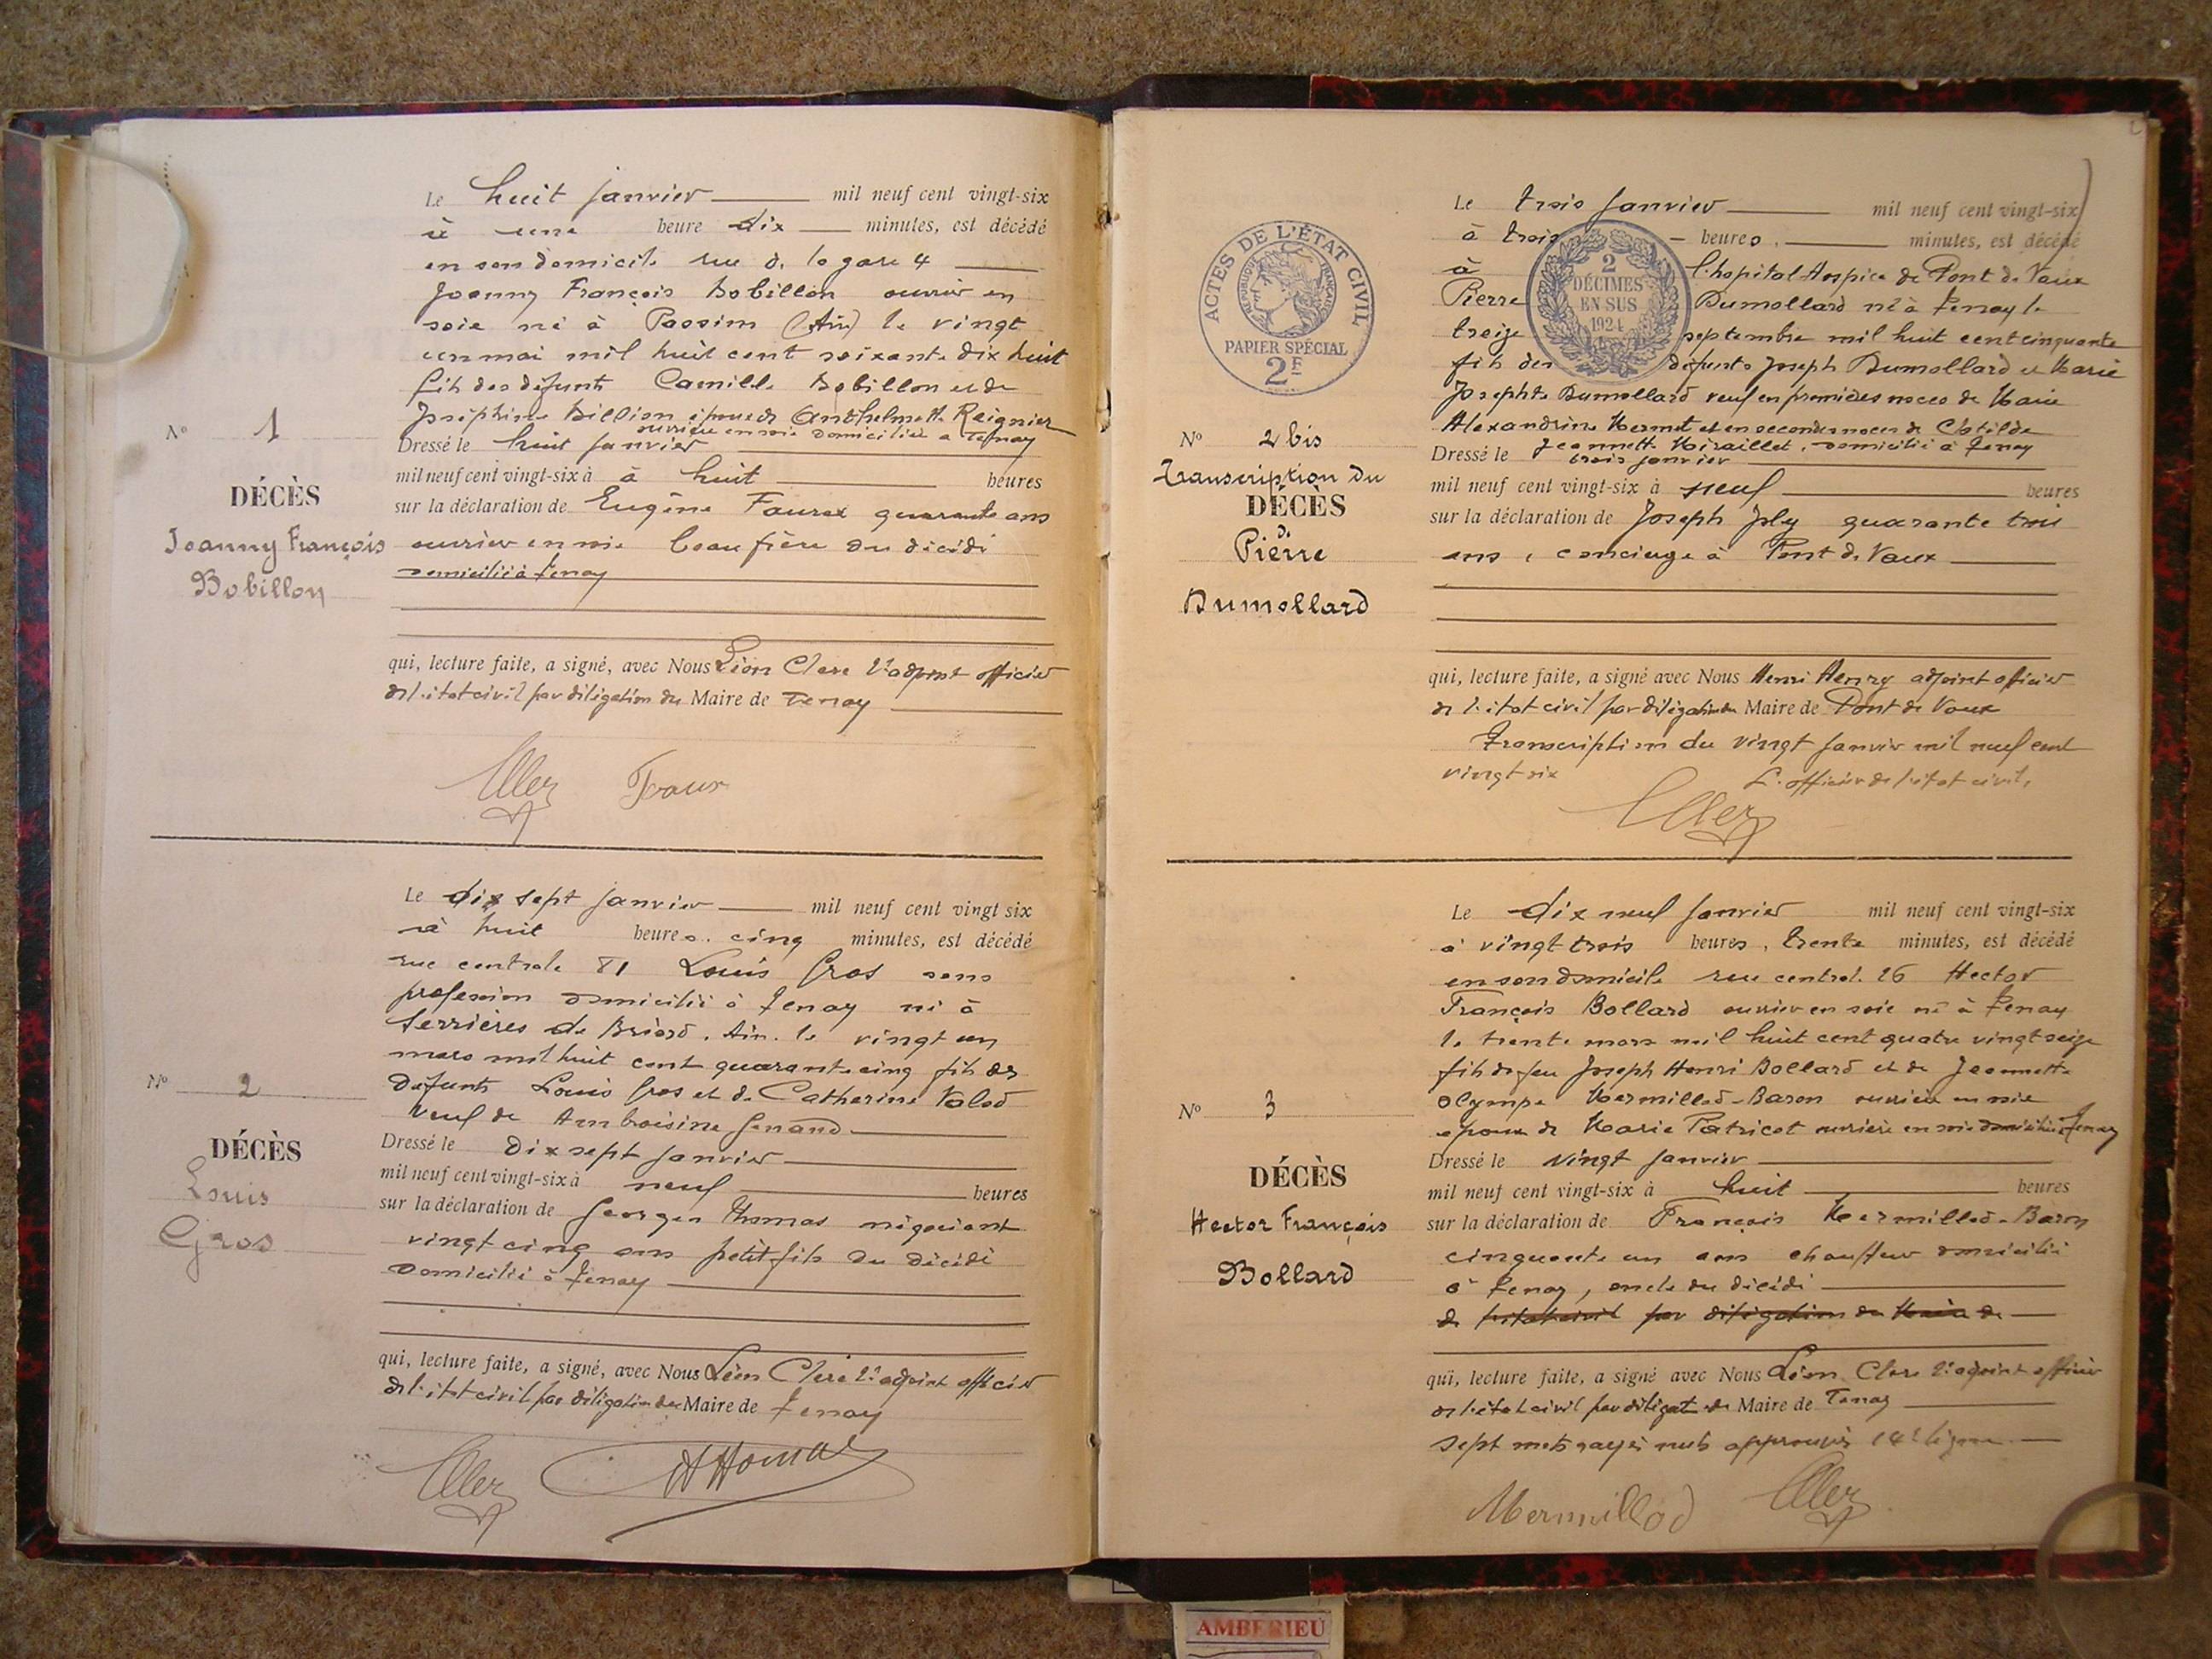 Le huit janvier mil neuf cent vingt-six
à une heure dix minutes, est décédé
en son domicile rue de la gare 4
Joanny François Bobillon ouvrier en
soie né à Passim (Ain) le vingt
un mai mil huit cent soixante dix huit
fils des défunts Camille Bobillon et de
Joséphine Billion époux de Anthelmette Reignier
ouvrière en soie domiciliée à Tenay
Nº 1
DÉCÈS
Joanny François
Bobillon
Dressé le huit janvier
mil neuf cent vingt-six à à huit heures
sur la déclaration de Eugène Faurax quarante ans
ouvrier en soie beau frère du décédé
domicilié à Tenay
qui, lecture faite, a signé, avec Nous Léon Clerc 2e adjoint officier
de l'état civil par délégation du Maire de Tenay
Le dix sept janvier mil neuf cent vingt six
à huit heures. cinq minutes, est décédé
rue centrale 81 Louis Gros sans
profession domicilié à Tenay né à
Serrières de Briord. Ain. le vingt un
mars mil huit cent quarante cinq fils des
défunts Louis Gros et de Catherine Valod
veuf de Amboisine Genand
Nº 2
DÉCÈS
Louis
Gros
Dressé le dix sept janvier
mil neuf cent vingt-six à neuf heures
sur la déclaration de Georges Thomas négociant
vingt cinq ans petit fils du décédé
domicilié à Tenay
qui, lecture faite, a signé, avec Nous Léon Clerc 2e adjoint officier
de l'état civil par délégation du Maire de Tenay
Thomas
ACTES DE L'ÉTAT CIVIL
RÉPUBLIQUE FRANÇAISE
PAPIER SPÉCIAL
2F
2
DÉCIMES
EN SUS
1924
Le trois janvier mil neuf cent vingt-six
à trois heures, minutes, est décédé
à l'hopital Hospice de Pont de Vaux
Pierre Dumollard né à Tenay le
treize septembre mil huit cent cinquante
fils des défunts Joseph Dumollard et Marie
Josephte Dumollard veuf en premières noces de Marie
Alexandrine Mermet et en secondes noces de Clotilde
Jeannette Miraillet, domicilié à Tenay
Nº 2 bis
Transcription du
DÉCÈS
de
Pierre
Dumollard
Dressé le trois janvier
mil neuf cent vingt-six à neuf heures
sur la déclaration de Joseph Joly quarante trois
ans, concierge à Pont de Vaux
qui, lecture faite, a signé avec Nous Henri Henry adjoint officier
de l'état civil par délégation du Maire de Pont de Vaux
Transcription du vingt janvier mil neuf cent
vingt six L'officier de l'état civil,
Le dix neuf janvier mil neuf cent vingt-six
à vingt trois heures, trente minutes, est décédé
en son domicile rue central. 26 Hector
François Bollard ouvrier en soie né à Tenay
le trente mars mil huit cent quatre vingt seize
fils de feu Joseph Henri Bollard et de Jeannette
Olympe Mermillod-Baron ouvrière en soie
époux de Marie Patricot ouvrière en soie domiciliée Tenay
Nº 3
DÉCÈS
Hector François
Bollard
Dressé le vingt janvier
mil neuf cent vingt-six à huit heures
sur la déclaration de François Mermillod-Baron
cinquante un ans chauffeur domicilié
à Tenay, oncle du décédé
de l'état civil par délégation du Maire de
qui, lecture faite, a signé avec Nous Léon Clerc 2e adjoint officier
de l'état civil par délégat. du Maire de Tenay
Sept mots rayés nuls approuvés 14e ligne
Mermillod
AMBERIEU